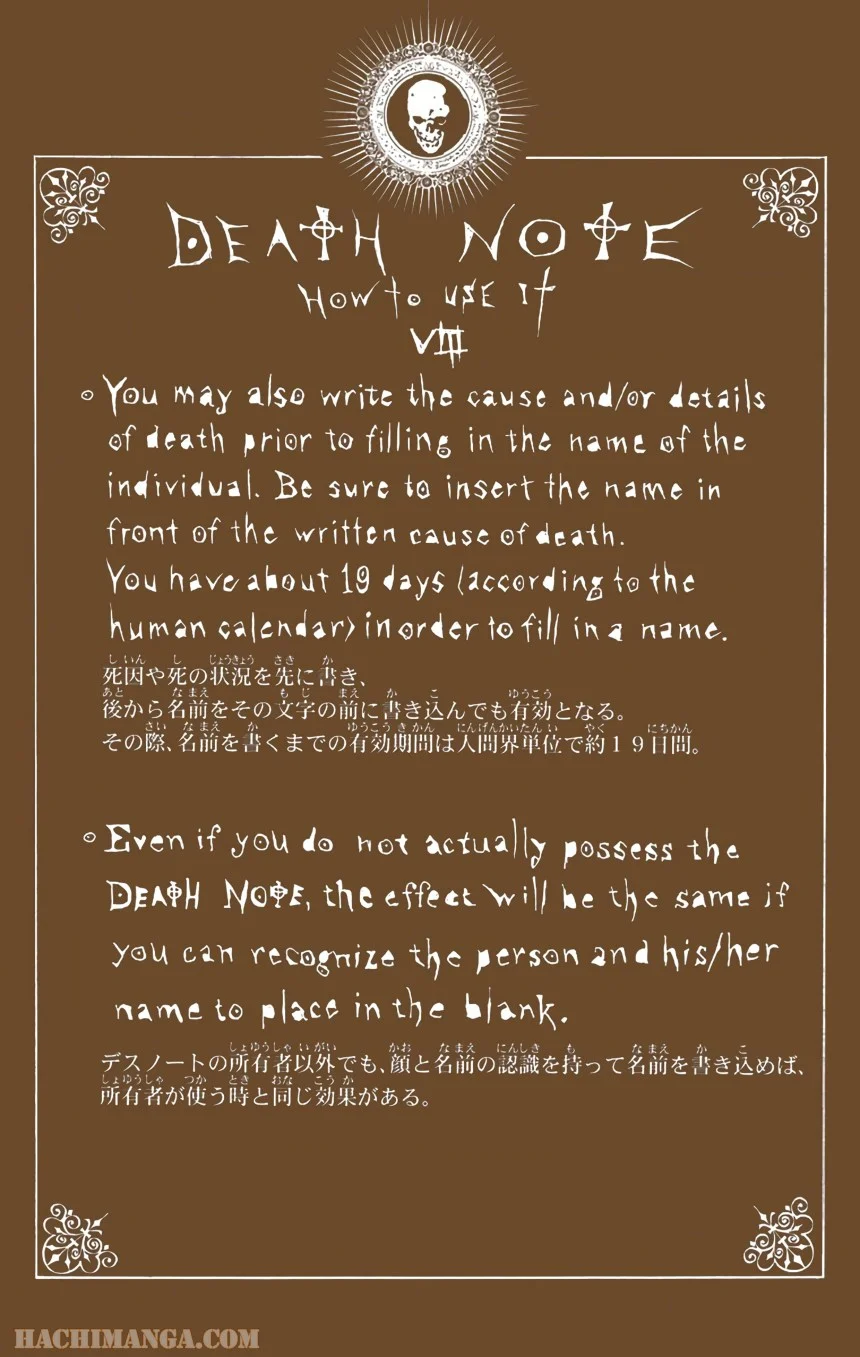 DEATH NOTE
HOW to USE IT
VIII
You may also write the cause and/or details
of death prior to filling in the name of the
individual. Be sure to insert the name in
front of the written cause of death.
You have about 19 days (according to the
human calendar) in order to fill in a name.
死因や死の状況を先に書き、
後から名前をその文字の前に書き込んでも有効となる。
その際、名前を書くまでの有効期間は人間界単位で約19日間。
Even if you do not actually possess the
DEATH NOTE, the effect will be the same if
you can recognize the person and his/her
name to place in the blank.
デスノートの所有者以外でも、顔と名前の認識を持って名前を書き込めば、
所有者が使う時と同じ効果がある。
HACHIMANGA.COM